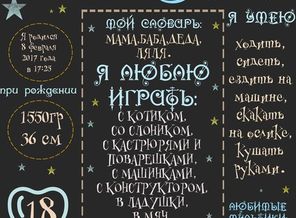 Я родился
8 февраля
2017 года
в 17:25
при рождении
1550гр
36 см
18
МОЙ СЛОВАРЬ:
МАМА, БАБА, ДЕДА,
ЛЯЛЯ.
Я ЛЮБЛЮ
ИГРАТЬ:
С КОТИКОМ,
СО СЛОНИКОМ,
С КАСТРЮЛЯМИ И
ПОВАРЕШКАМИ,
С МАШИНКАМИ,
С КОНСТРУКТОРОМ,
В ЛАДУШКИ,
В МЯЧ
Я УМЕЮ
ХОДИТЬ,
СИДЕТЬ,
ЕЗДИТЬ НА
МАШИНЕ,
СКАКАТЬ
НА ОСЛИКЕ,
КУШАТЬ
РУКАМИ.
ЛЮБИМЫЕ